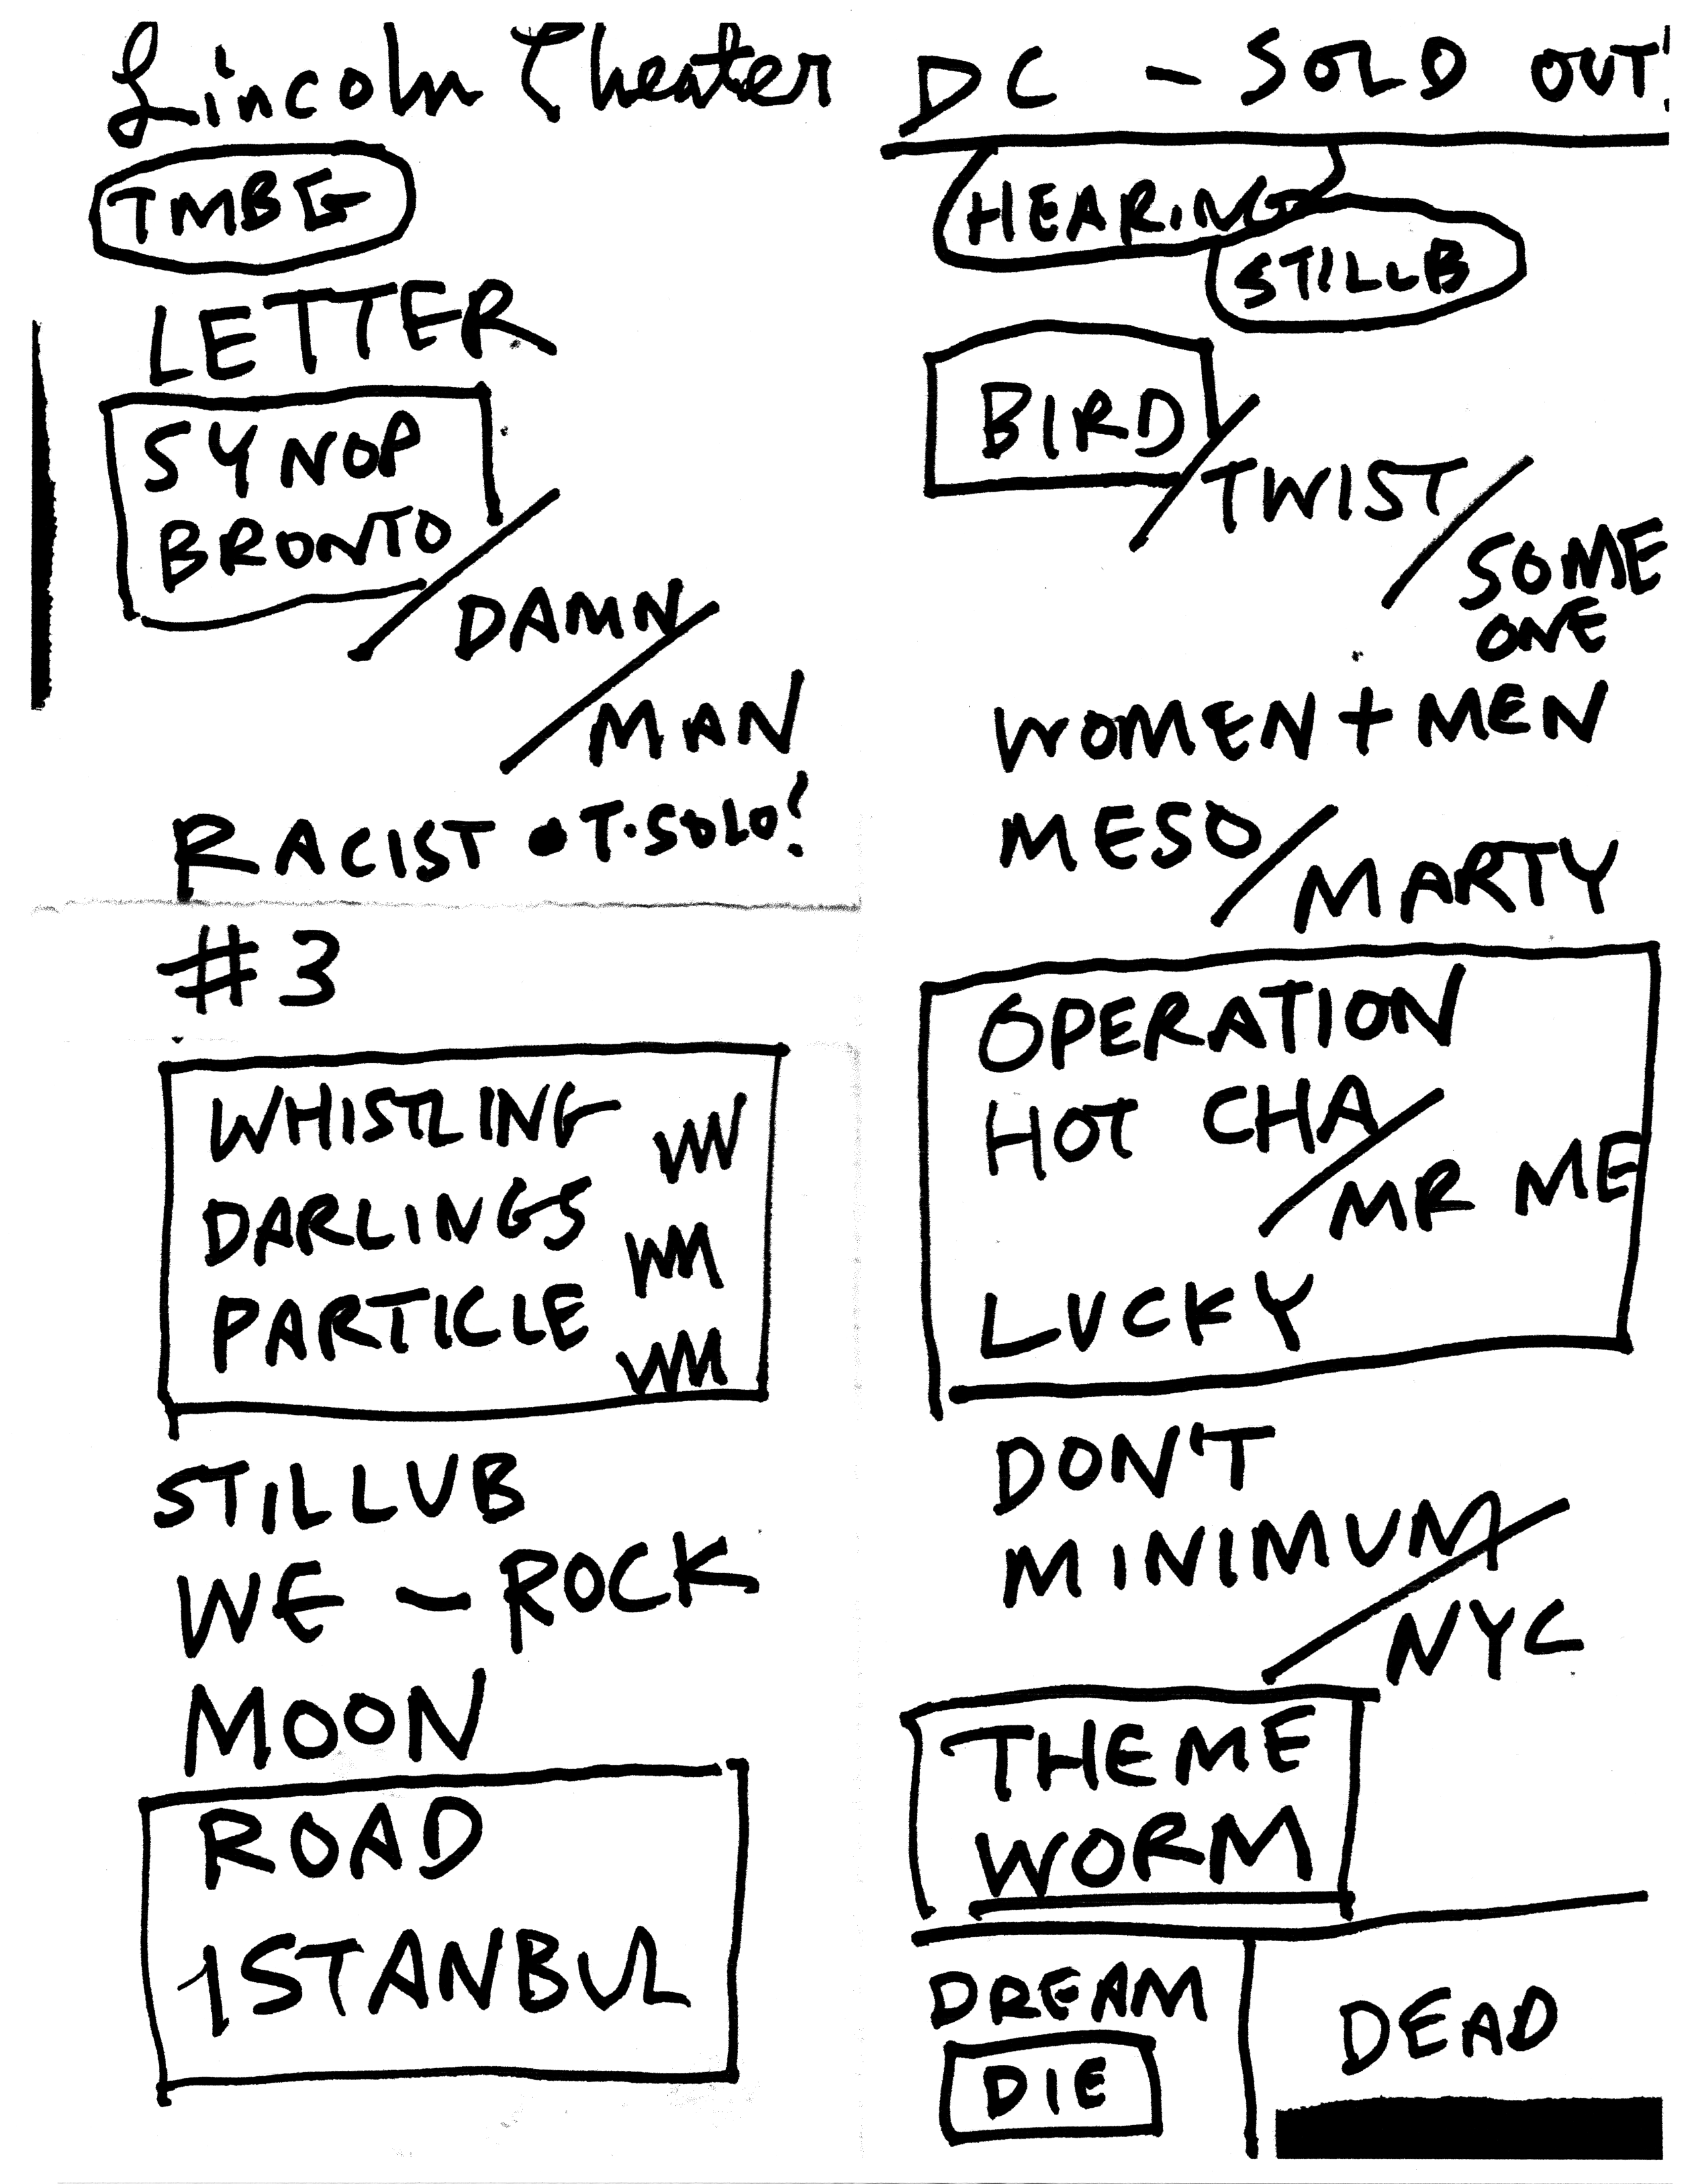 Lincoln Theater DC - SOLD OUT!
TMBG
LETTER
SYNOP
BRONTO / DAMN / MAN
RACIST • T.SOLO!
#3
WHISTLING
DARLINGS
PARTICLE
STILLUB
WE - ROCK
MOON
ROAD
ISTANBUL
HEARING
STILLB
BIRD / TWIST / SOME
ONE
WOMEN + MEN
MESO / MARTY
OPERATION
HOT CHA / MR ME
LUCKY
DON'T
MINIMUM / NYC
THEME
WORM
DREAM
DIE
DEAD